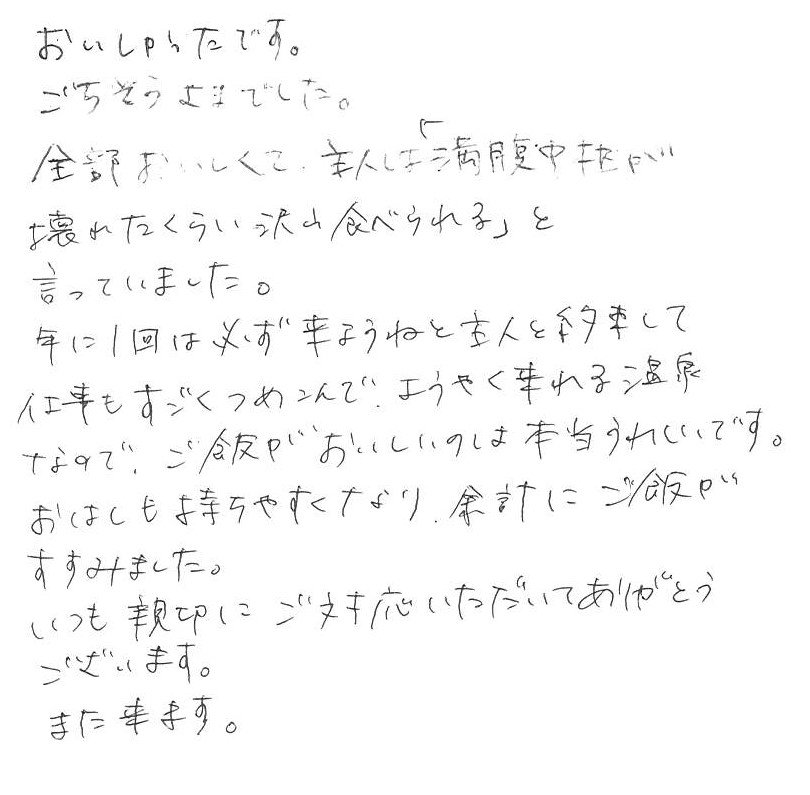 おいしかったです。
ごちそうさまでした。
全部おいしくて、主人は「満腹中枢が
壊れたくらい沢山食べられる」と
言っていました。
年に1回は必ず来ようねと主人と約束して
仕事もすごくつめこんで、ようやく来れる温泉
なので、ご飯がおいしいのは本当うれしいです。
おはしも持ちやすくなり、余計にご飯が
すすみました。
いつも親切にご対応いただいてありがとう
ございます。
また来ます。